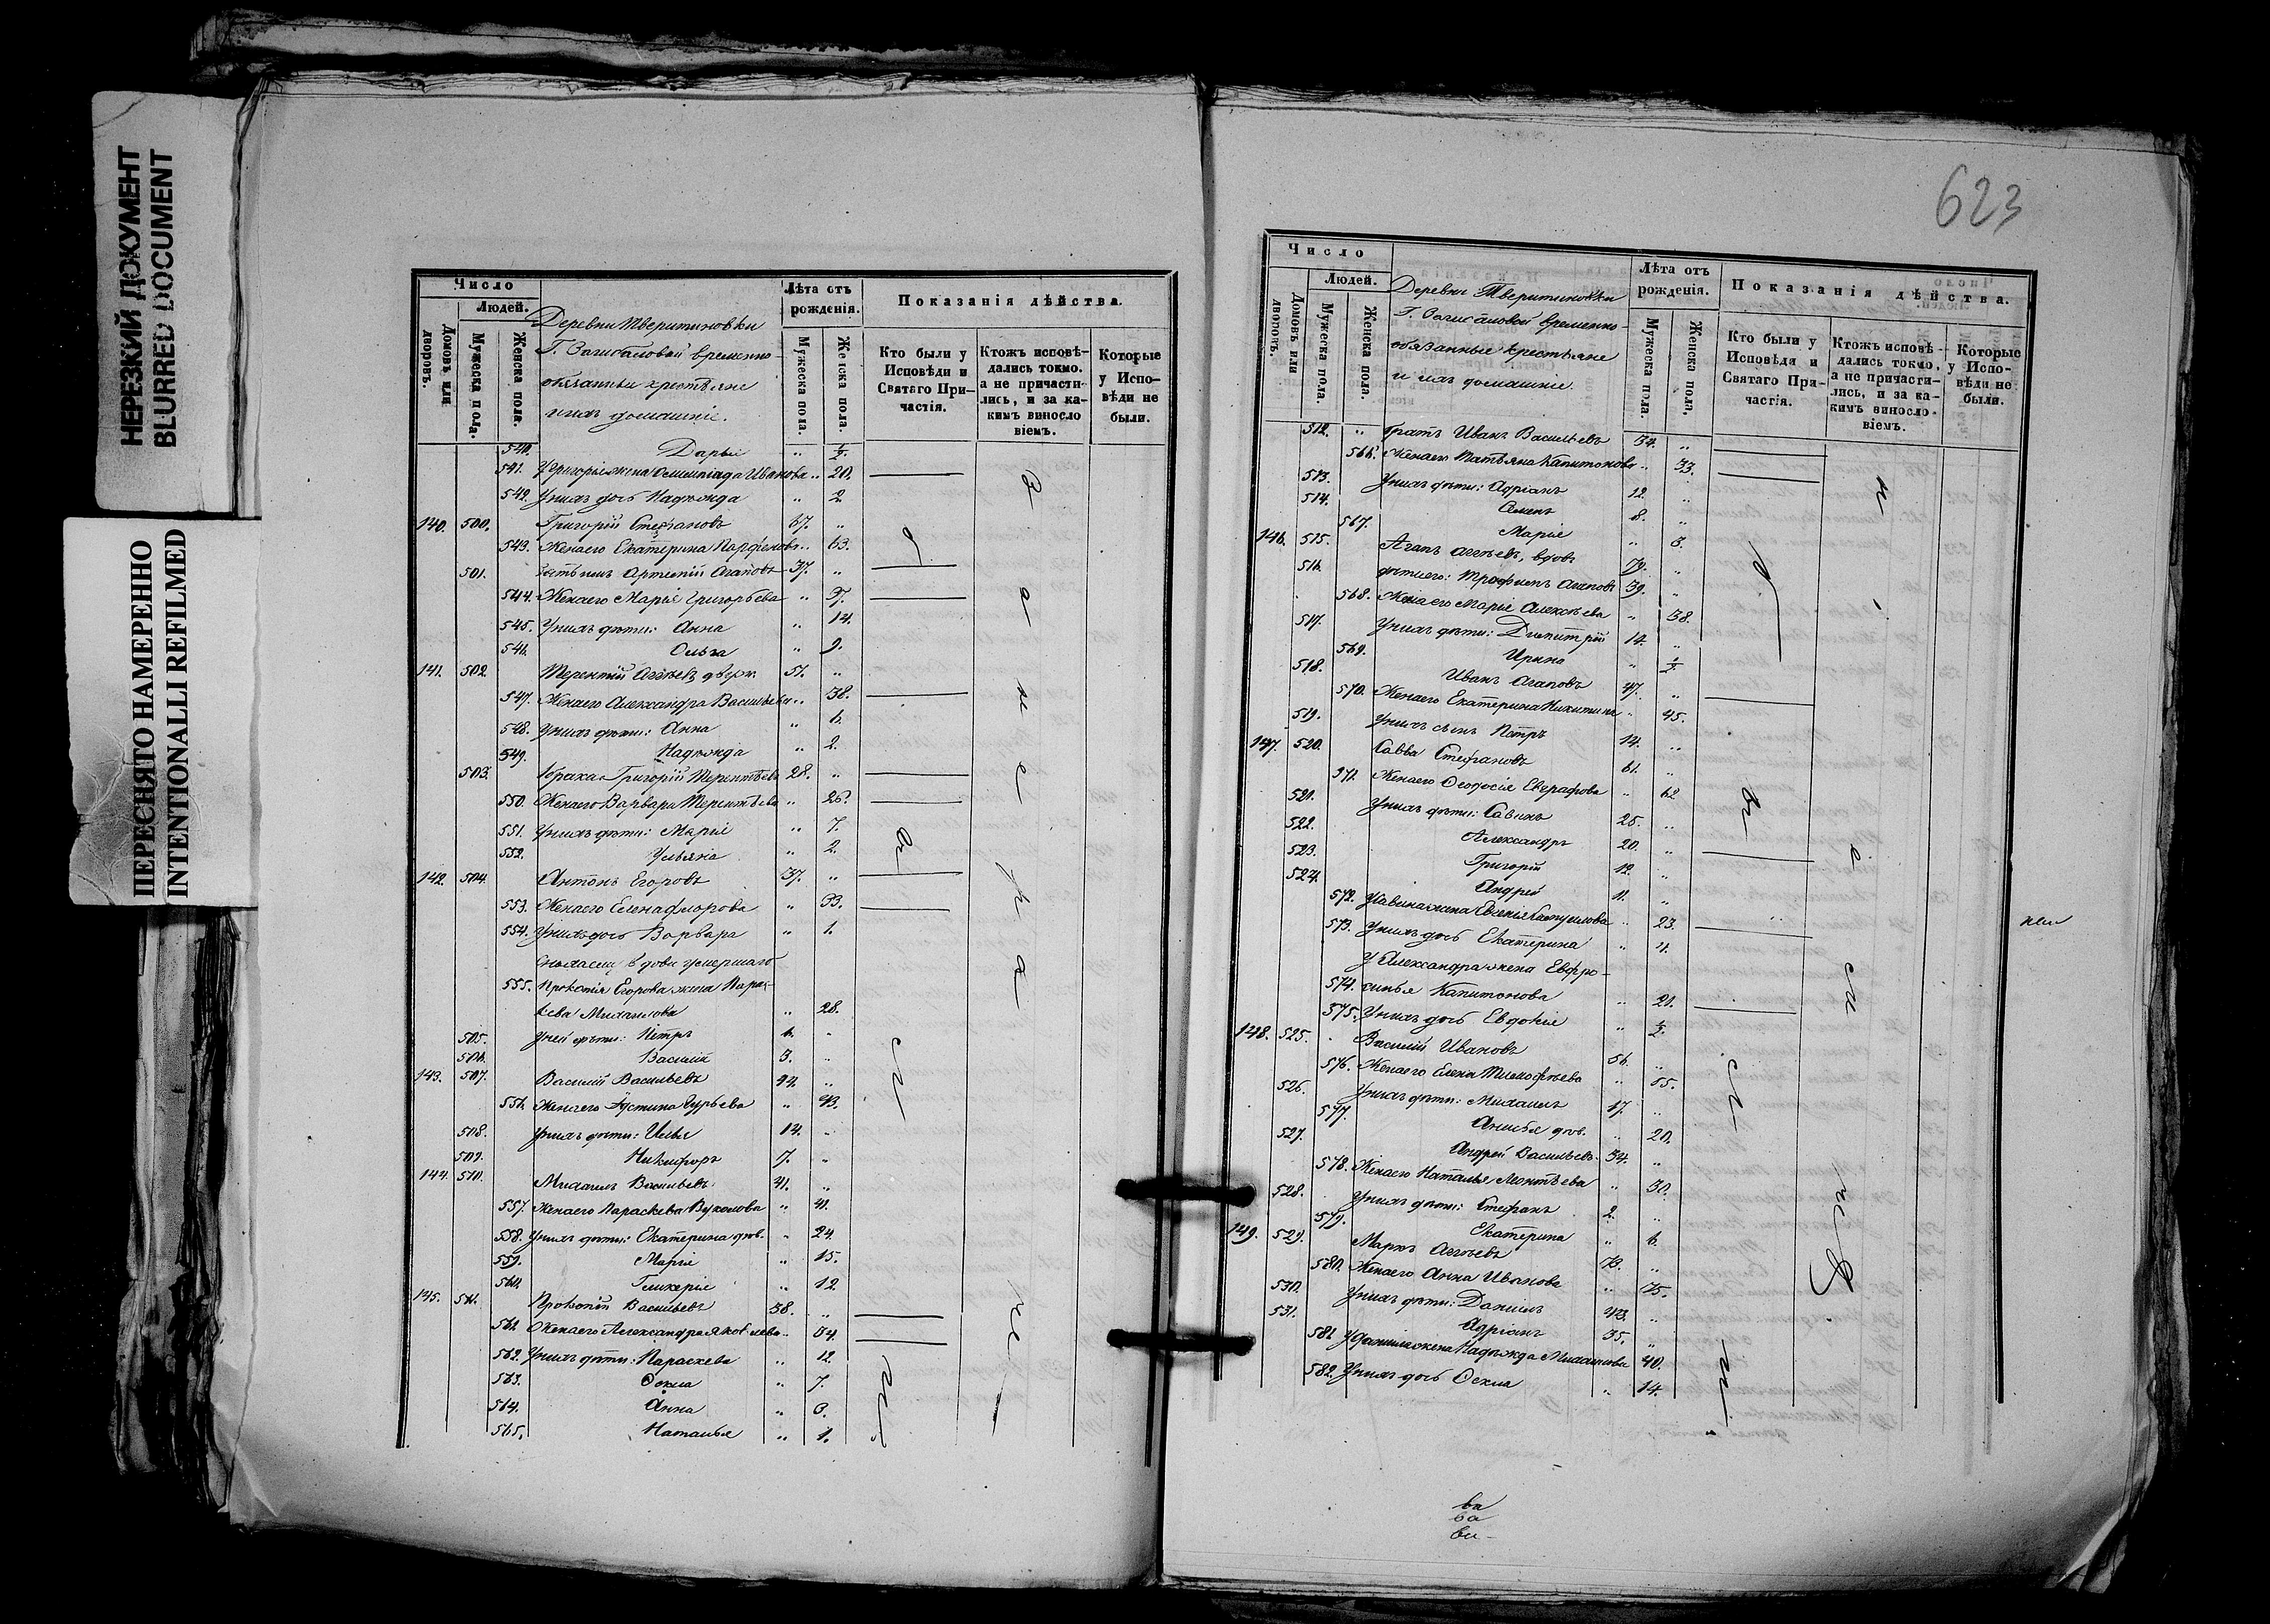 НЕРЕЗКИЙ ДОКУМЕНТ
BLURRED DOCUMENT
ПЕРЕСНЯТО НАМЕРЕННО
INTENTIONALLI REFILMED
Число
Людей.
Домовъ или дворовъ.
Мужеска пола.
Женска пола.
Деревни Тверитиновки
Г. временно-
обязанные крестьяне
и ихъ домашніе.
Лѣта отъ рожденія.
Мужеска пола.
Женска пола.
Показанія дѣйства.
Кто были у Исповѣди и Святаго Причастія.
Ктожъ исповѣдались токмо, а не причастились, и за какимъ винословіемъ.
Которые у Исповѣди не были.
540. Дарья " ½.
541. У Григорія жена Олимпіада Иванова " 20.
542. У нихъ дочь Надежда " 2
140. 500. Григорій Стефановъ 67. "
543. Жена его Екатерина Парфенова " 63.
501. Зять ихъ Артемій Агаповъ 37. "
544. Жена его Марія Григорьева " 37.
545. У нихъ дѣти: Анна " 14.
546. Ольга " 9.
141. 502. Терентій Аггѣевъ 51. "
547. Жена его Александра Васильева " 38.
548. У нихъ дѣти: Анна " 6.
549. Надежда " 2.
503. Григорій Терентьевъ 28. "
550. Жена его Варвара Терентьева " 26.
551. У нихъ дѣти: Марія " 7.
552. Ульянія " 2.
142. 504. Антонъ Егоровъ 37. "
553. Жена его Елена Флорова " 33.
554. У нихъ дочь Варвара " 1.
умершаго
555. Прокопія Егорова жена Парас-
кева Михайлова " 28.
505. У ней дѣти: Петръ 6. "
506. Василій 3. "
143. 507. Василій Васильевъ 44. "
556. Жена его Іустина Гурьева " 43.
508. У нихъ дѣти: Илья 14. "
509. Никифоръ 7. "
144. 510. Михаилъ Васильевъ 41. "
557. Жена его Параскева Вуколова " 41.
558. У нихъ дѣти: Екатерина дѣв. " 24.
559. Марія " 15.
560. Гликерія " 12.
145. 511. Прокопій Васильевъ 38. "
561. Жена его Александра Яковлева " 34.
562. У нихъ дѣти: Параскева " 12.
563. Ѳекла " 7.
564. Анна " 3.
565. Наталья " 1.
623
Число
Людей.
Домовъ или дворовъ.
Мужеска пола.
Женска пола.
Деревни Тверитиновки
Г. временно-
обязанные крестьяне
и ихъ домашніе.
Лѣта отъ рожденія.
Мужеска пола.
Женска пола.
Показанія дѣйства.
Кто были у Исповѣди и Святаго Причастія.
Ктожъ исповѣдались токмо, а не причастились, и за какимъ винословіемъ.
Которые у Исповѣди не были.
512. " братъ Иванъ Васильевъ 34. "
566. Жена его Татьяна Капитонова " 33.
513. У нихъ дѣти: Адріанъ 12. "
514. 8. "
567. Марія " 3.
146. 515. Агапъ Аггѣевъ, вдовъ 79. "
516. дѣти его: Трофимъ Агаповъ 39. "
568. Жена его Марія Алексѣева " 38.
517. У нихъ дѣти: Димитрій 14. "
569. Ирина " ½
518. Иванъ Агаповъ 47. "
570. Жена его Екатерина Никитина " 45.
519. У нихъ сынъ Петръ 14. "
147. 520. Савва Стефановъ 61. "
571. Жена его Ѳеодосія Евграфова " 62
521. У нихъ дѣти: Савинъ 25. "
522. Александръ 20. "
523. Григорій 12. "
524. Андрей 11. "
572. У Савина жена Евгенія " 23.
573. У нихъ дочь Екатерина " 4.
У Александра жена Евфро-
574. синья Капитонова " 21.
575. У нихъ дочь Евдокія " ½.
148. 525. Василій Ивановъ 56. "
576. Жена его Елена Тимофѣева " 55.
526. У нихъ дѣти: Михаилъ 17. "
577. Анисья дѣв. " 20.
527. Андрей Васильевъ 34. "
578. Жена его Наталья Леонтьева " 30.
528. У нихъ дѣти: Стефанъ 2. "
579. Екатерина " 6.
149. 529. Маркъ Аггѣевъ 73. "
580. Жена его Анна Иванова " 75.
530. У нихъ дѣти: Даніилъ 43. "
531. Адріанъ 35. "
581. У Даніила жена Надежда Михайлова 40.
582. У нихъ дочь Ѳекла " 14.
ва
ва
ви-